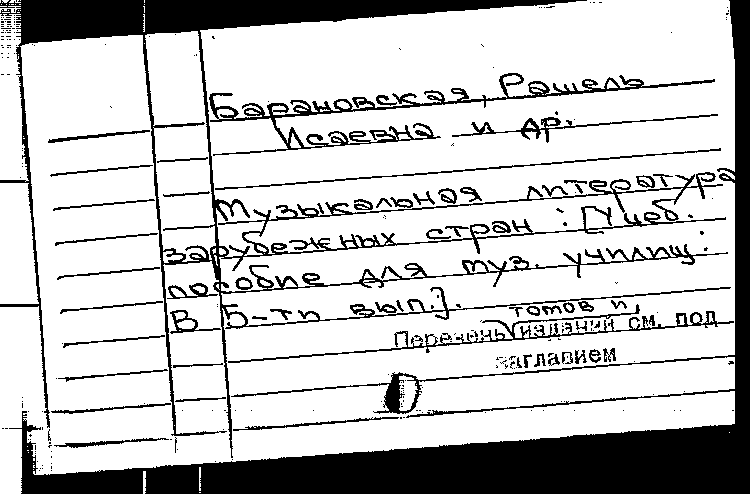 Барановская, Рашель
Исаевна и др.
Музыкальная литература
зарубежных стран : [Учеб.
пособие для муз. училищ :
В 5-ти вып.].
томов и,
Перечень изданий см. под
заглавием